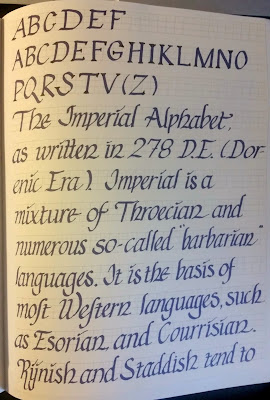 ABCDEF
ABCDEFGHIKLMNO
PQRSTV(Z)
The Imperial Alphabet,
as written in 278 D.E. (Dor-
enic Era). Imperial is a
mixture of Throecian and
numerous so-called "barbarian"
languages. It is the basis of
moſt Weſtern languages, such
as Esorian and Courrisian.
Rijnish and Staddish tend to